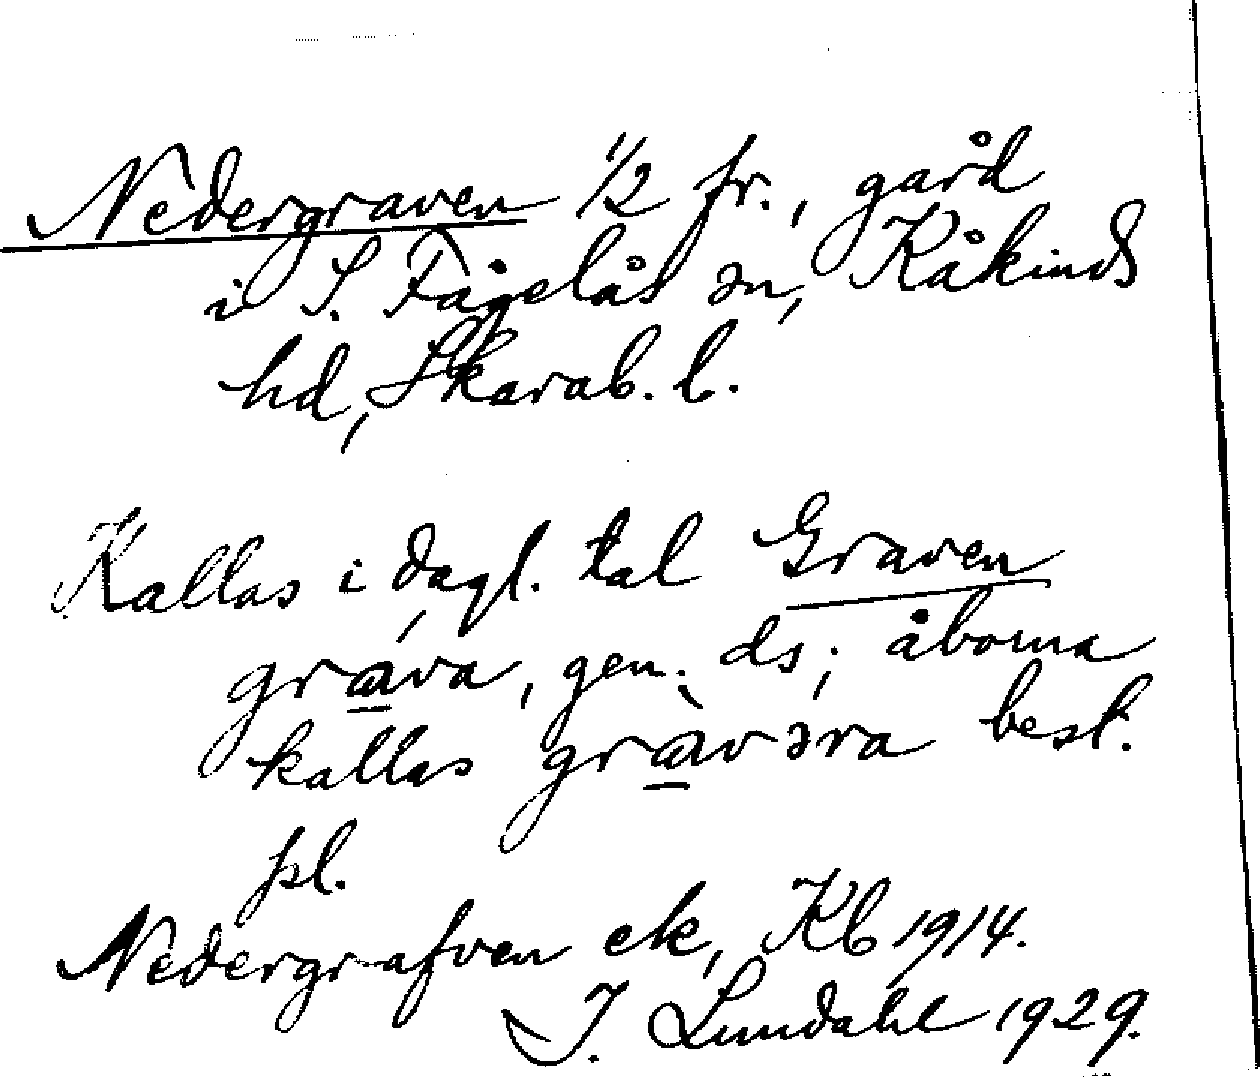 Nedergraven 1/2 fr., gård
i S. Fågelås sn, Kåkinds
hd, Skarab. l.
Kallas i dagl. tal Graven
gráva, gen. ds; åborna
kallas gràvəra best.
pl.
Nedergrafven ek, Kb 1914.
I. Lundahl 1929.